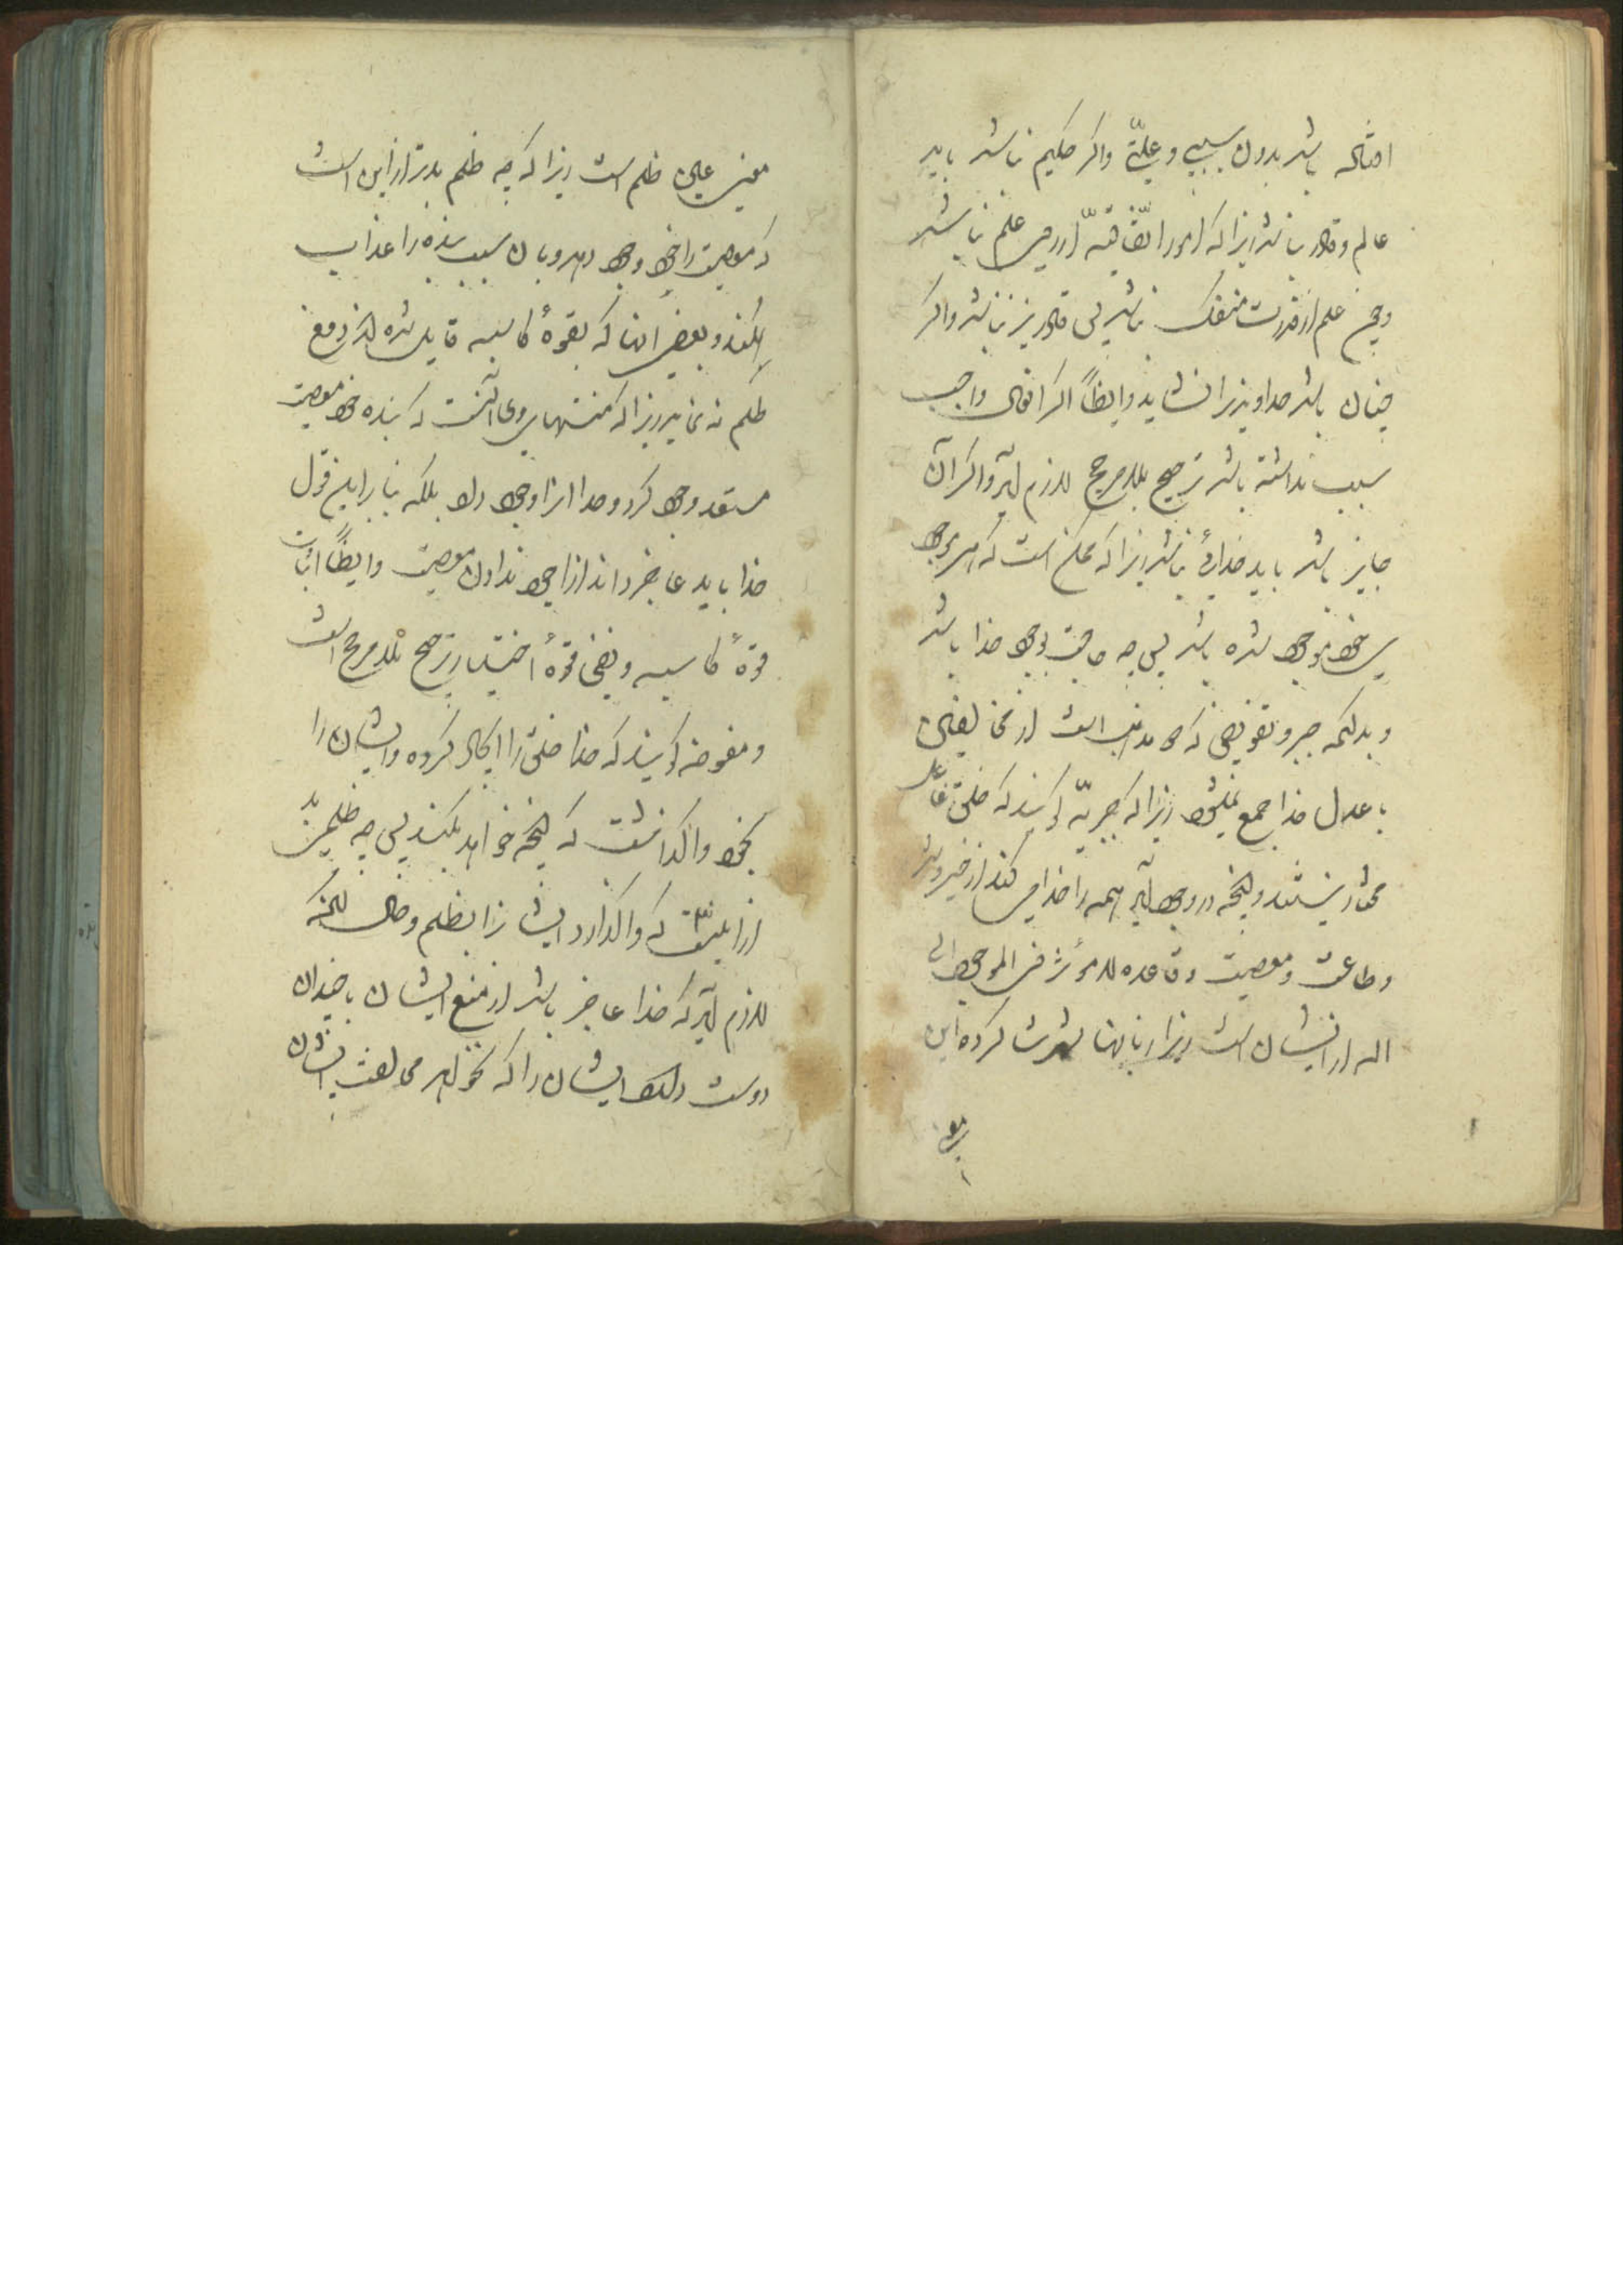 امثاله باشد بدون سببی و علّتی و اگر حکیم نباشد باید
عالم و قادر نباشد زیرا که امور اتّفاقیّه از روی علم نباشد
و چون علم از قدرت منفک نباشد پس قادر نیز نباشد و اگر
چنان باشد خداوندیرا نشاید و ایضاً اگر افعال واجب
سبب نداشته باشد ترجیح بلامرجح لازم آید و اگر آن
جایز باشد باید خدائی نباشد زیرا که ممکن است که هر موجود
بخود موجود شده باشد پس چه حاجت بوجود خدا باشد
و بدانکه جبر و تفویض که دو مذهب است از مخالفین
با عدل خدا جمع نمیشود زیرا که جبریّه گویند که خلق فاعل
مختار نیستند و آنچه در وجود آید همه را خدا می کند از خیر و شر
و طاعت و معصیت و قاعده لا مؤثر فی الوجود الا
الله از ایشان است زیرا بنا بهذا شهرت کرده این
معنی عین ظلم است زیرا که چه ظلم بدتر از این است
که معصیت را خود وجود دهد و بآن سبب بنده را عذاب
کند و بعضی از آنها که بقوهٔ کاسبه قایل شده اند دفع
ظلم نه نماید زیرا که منتهای مدعا آنست که بنده خود معصیت
مستعد وجود کرد و خدا آنرا وجود داد بلکه بنا براین قول
خدا باید عاجز داند از وجود ندادن معصیت و ایضاً اثبات
قوهٔ کاسبه و نفی قوهٔ اختیار ترجیح بلامرجح است
و مفوضه گویند که خدا خلق را ایجاد کرده و ایشان را
بخود واگذاشت که آنچه خواهد بکنند پس چه ظلمی بد
تر از این نیست که واگذارد ایشانرا بظلم و حال آنکه
لازم آید که خدا عاجز باشد از منع ایشان با چندان
دوست داشتن ایشان را که نخواهد مخالفت ایشان